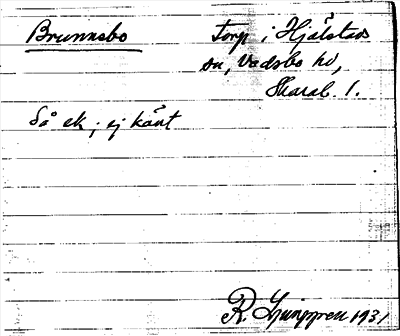 Brunnsbo
Torp i Hjälstads
sn, Vadsbo hd,
Skarab. l.
Så ek; ej känt
R. Ljunggren 1931